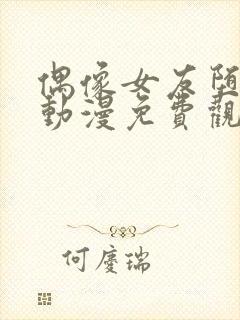 偶像女友堕
動漫免費觀
何慶瑞